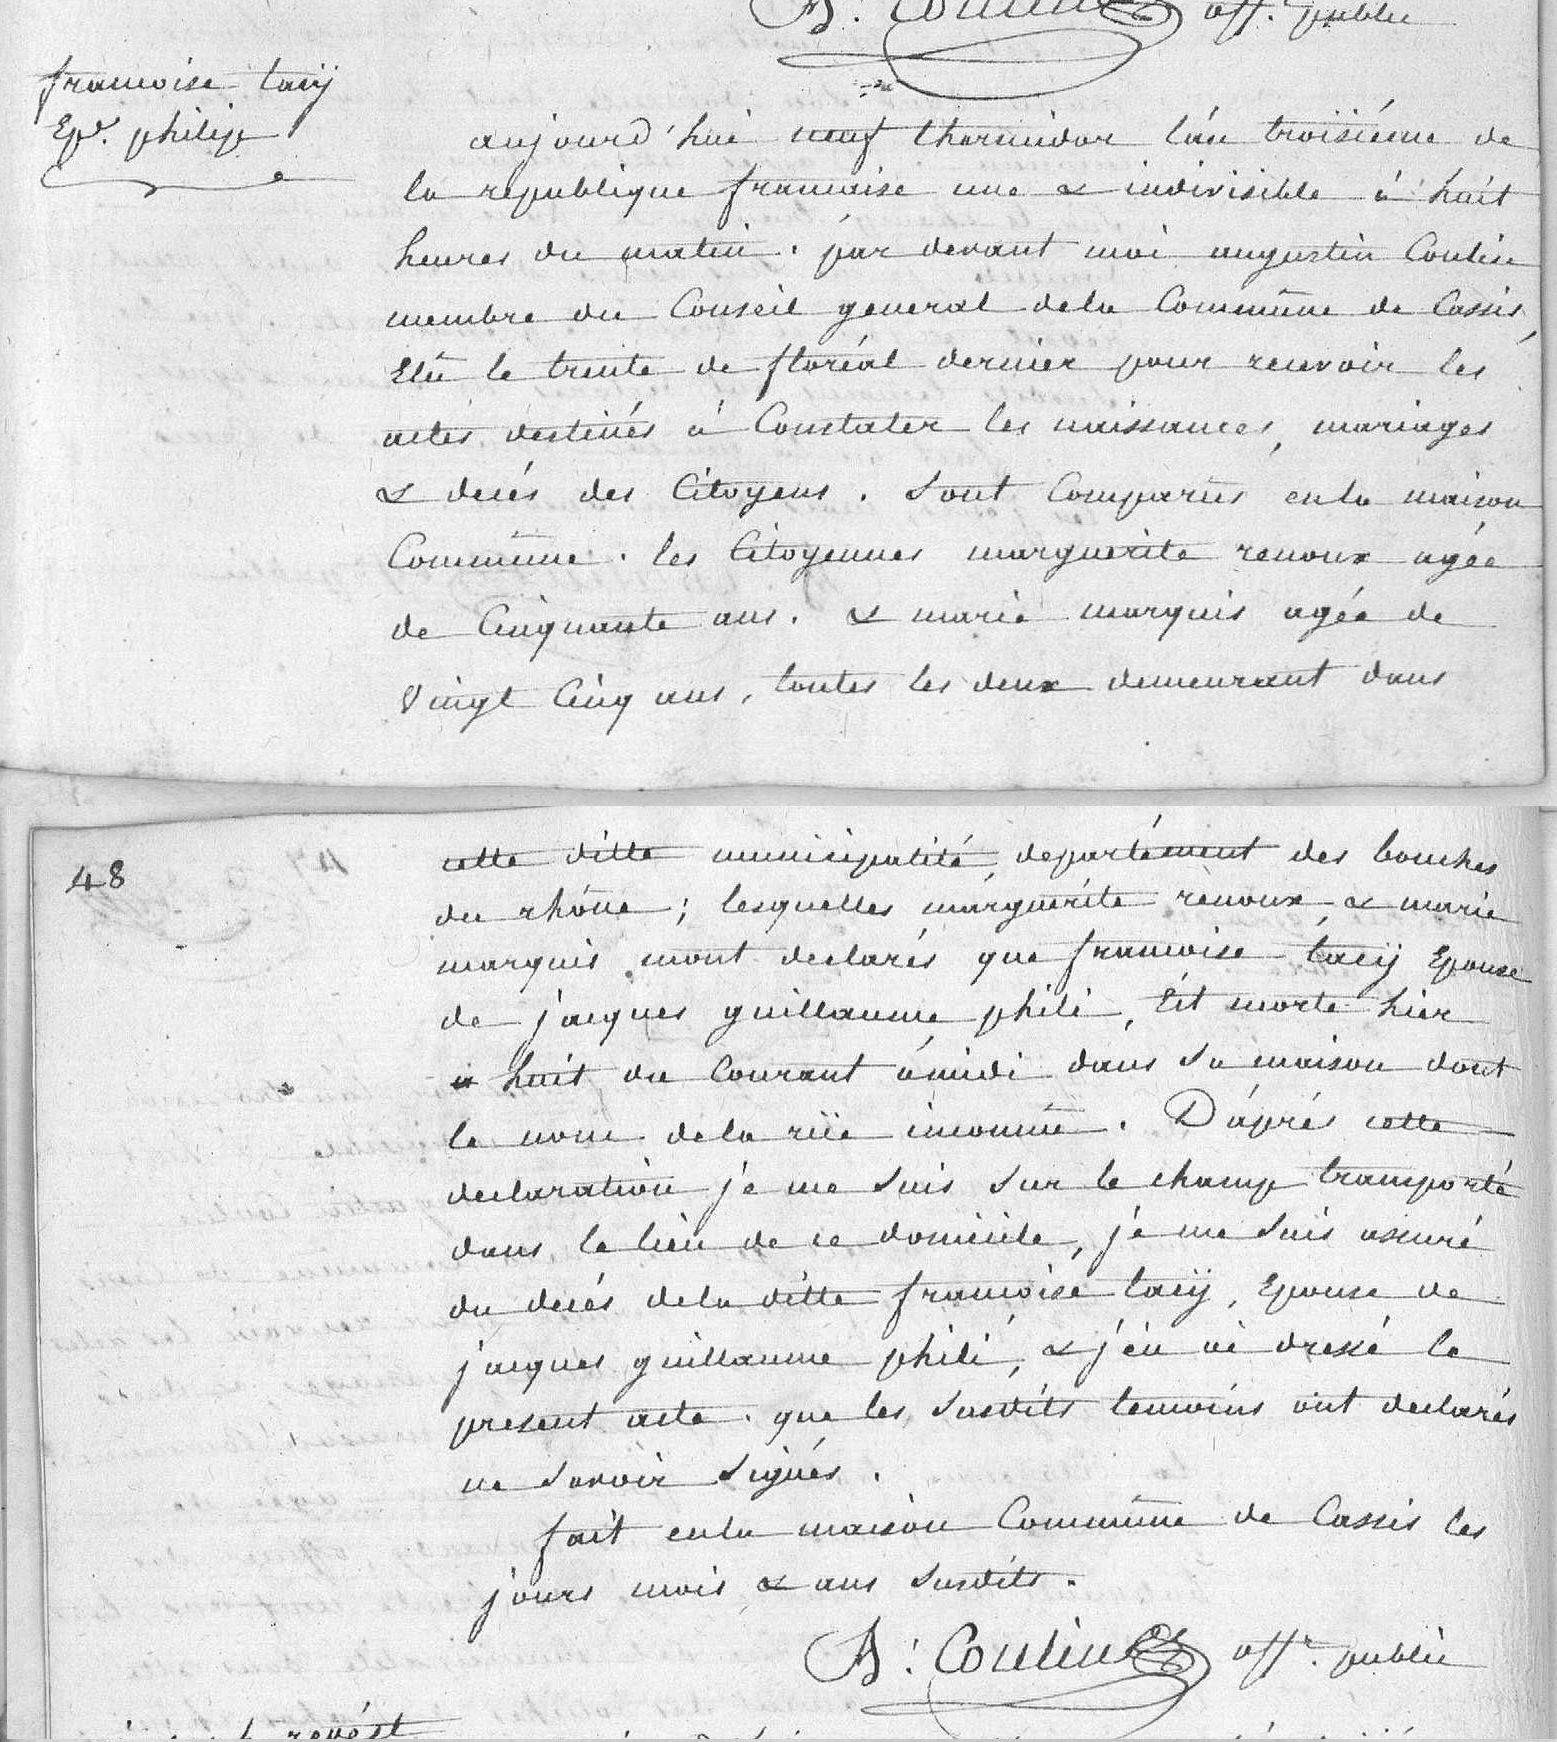 A: Coulin off.r public
francoise taÿ
Epse. philip
aujourd'hui neuf thermidor l'an troisiéme de
la republique francaise une & indivisible à huit
heures du matin. par devant moi augustin Coulin
membre du Conseil general dela Commune de Cassis,
Elû le trente de floréal dernier pour recevoir les
actes destinés à Constater les naissances, mariages
& decés des Citoyens. Sont Comparus enla maison
Commune. les Citoyennes marguerite renoux agée
de Cinquante ans. & marie marquis agée de
Vingt Cinq ans, toutes les deux demeurant dans
48
cette ditte municipalité, departement des bouches
du rhône; lesquelles marguerite renoux, & marie
marquis mont declarés que francoise taÿ Epouse
de jacques guillaume phili, Est morte hier
huit du Courant àmidi dans sa maison dont
le nom dela rüe inconnu. D'aprés cette
declaration je me suis sur le champ transporté
dans le lieu de ce domicile, je me suis assuré
du decés dela ditte francoise taÿ, Epouse de
jacques guillaume phili, & j'en ai dressé le
present acte. que les susdits temoins ont declarés
ne savoir signés.
fait enla maison Commune de Cassis les
jours mois & ans susdits.
A: Coulin off.r public
revést